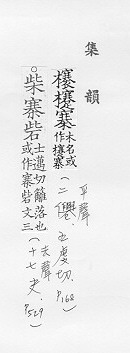 集韻
寨木名或作寨
平聲
(二僊、丘虔切、P168
○柴寨砦士邁切籬落也或作寨砦文三
去聲
(十七夬、P529)